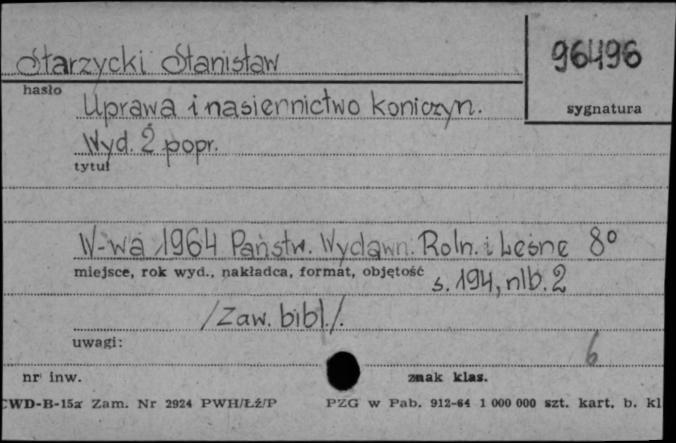 Starzycki Stanisław
96496
hasło
sygnatura
Uprawa i nasiennictwo koniczyn.
Wyd. 2 popr.
tytuł
W-wa 1964 Państw. Wydawn. Roln. i Leśne 8°
miejsce, rok wyd., nakładca, format, objętość
s. 194, nlb. 2
/Zaw. bibl./.
uwagi:
6
nr inw.
znak klas.
CWD-B-15a Zam. Nr 2924 PWH/Łź/P
PZG w Pab. 912-64 1 000 000 szt. kart. b. kl